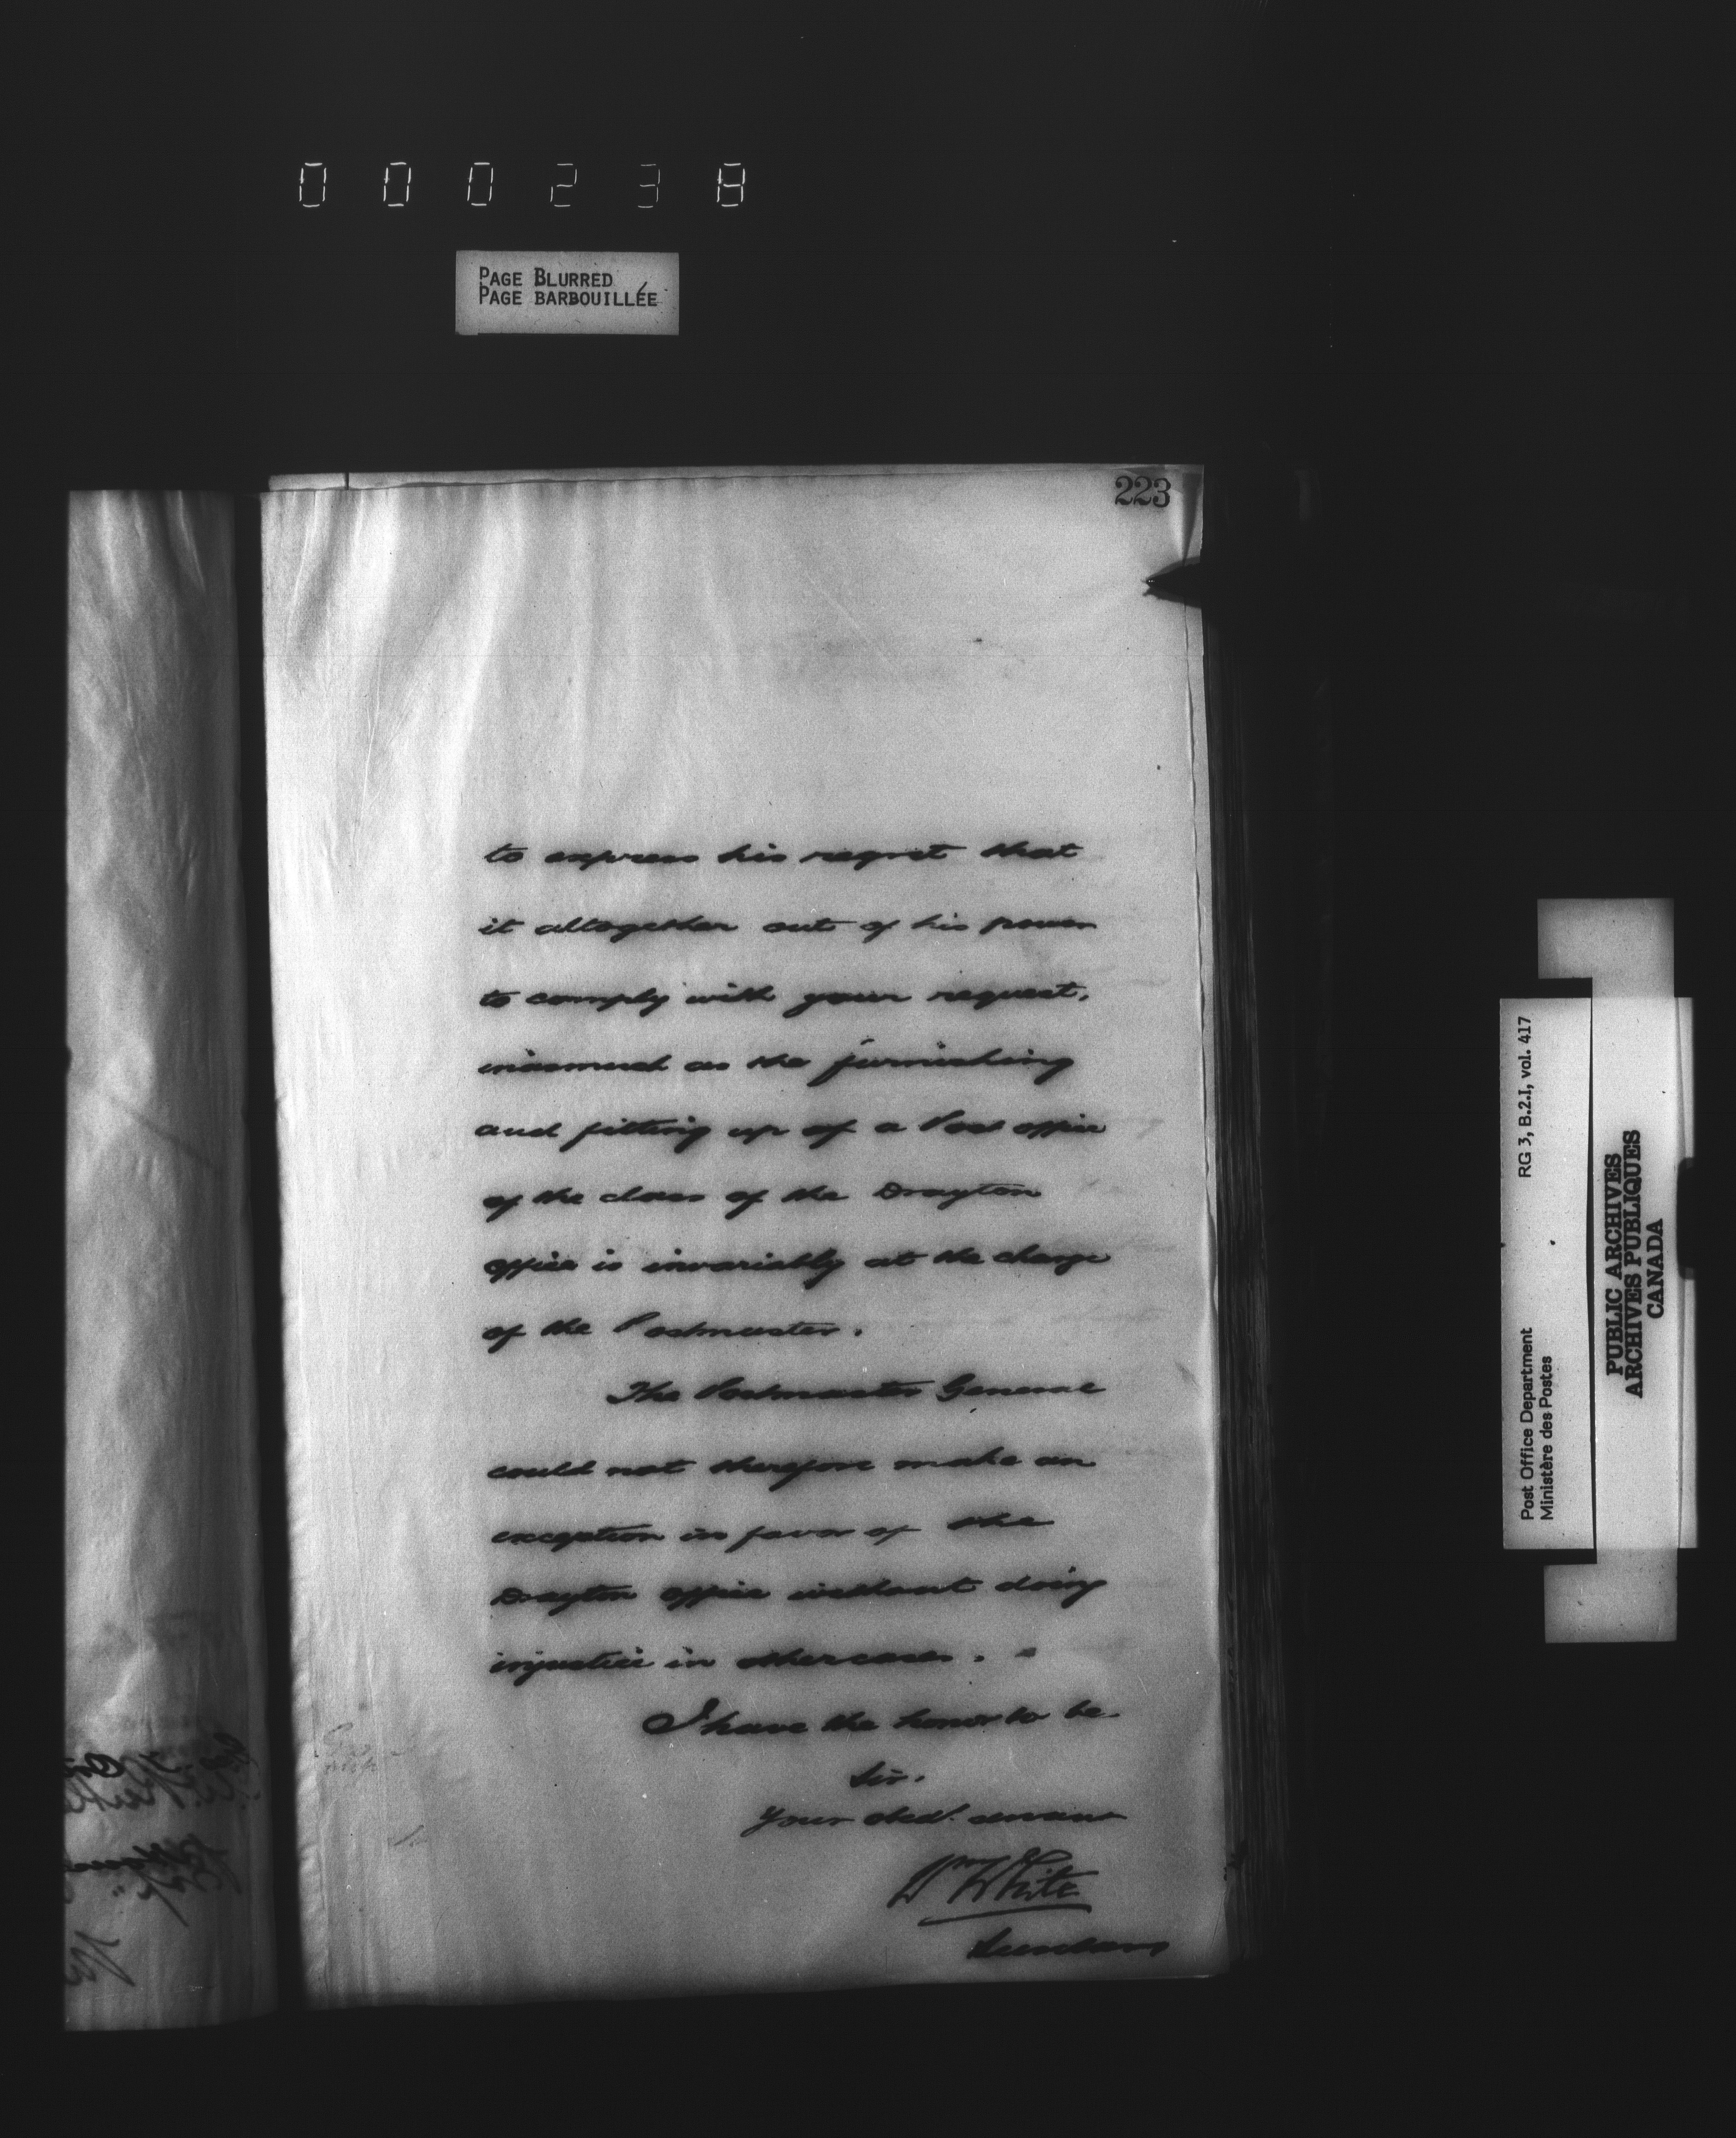 000238
PAGE BLURRED
PAGE BARBOUILLÉE
223
to express his regret that
it altogether out of his power
to comply with your request,
inasmuch as the furnishing
and fitting up of a Post office
of the class of the Drayton
office is invariably at the charge
of the Postmaster.
The Postmaster General
could not therefore make an
exception in favor of the
Drayton office without doing
injustice in other cases.
I have the honor to be
Sir,
Your obedt. servant
Wm White
Secretary
RG 3, B.2.I, vol. 417
Post Office Department
Ministère des Postes
PUBLIC ARCHIVES
ARCHIVES PUBLIQUES
CANADA